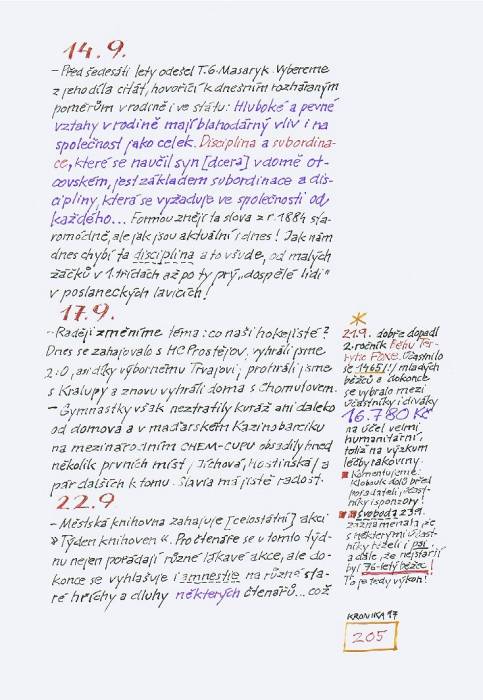 14.9.
- Před šedesáti lety odešel T.G. Masaryk. Vybereme
z jeho díla citát, hovořící k dnešním rozháraným
poměrům v rodině i ve státu: Hluboké a pevné
vztahy v rodině mají blahodárný vliv i na
společnost jako celek. Disciplina a subordina-
ce, které se naučil syn [dcera] v domě ot-
covském, jest základem subordinace a dis-
cipliny, která se vyžaduje ve společnosti od
každého... Formou znějí ta slova z r. 1884 sta-
romódně, ale jak jsou aktuální i dnes! Jak nám
dnes chybí ta disciplina a to všude, od malých
žáčků v 1. třídách až po ty prý „dospělé lidi"
v poslaneckých lavicích!
17.9.
- Raději změníme téma: co naši hokejisté?
Dnes se zahajovalo s HC Prostějov, vyhráli jsme
2:0, an díky výbornému Trvajovi; protnáli jsme
s Kralupy a znovu vyhráli doma s Chomutovem.
- Gymnastky však neztratily kuráž ani daleko
od domova a v maďarském Kazincbarciku
na mezinárodním CHEM-CUPU obsadily hned
několik prvních míst, Jichová, Hostinská, a
pár dalších k tomu. Slavia má jistě radost.
22.9
- Městská knihovna zahajuje [celostátní] akci
» Týden knihoven «. Pro čtenáře se v tomto týd-
nu nejen pořádají různé lákavé akce, ale do-
konce se vyhlašuje i amnestie na různé sta-
ré hříchy a dluhy některých čtenářů... což
21.9. dobře dopadl
2. ročník Běhu Ter-
ryho Foxe. Účastnilo
se 1465 /!/ mladých
běžců a dokonce
se vybralo mezi
účastníky i diváky
16.780 Kč
na účel velmi
humanitární,
totiž na výzkum
léčby rakoviny.
Komentujeme:
Klobouk dolů před
pořadateli, účast-
níky i sponzory!
Svoboda 23.9.
zaznamenala, že
s některými účast-
níky běželi i psi
a dále, že nejstarší
byl 76-letý běžec!
To je tedy výkon!
KRONIKA 97
205